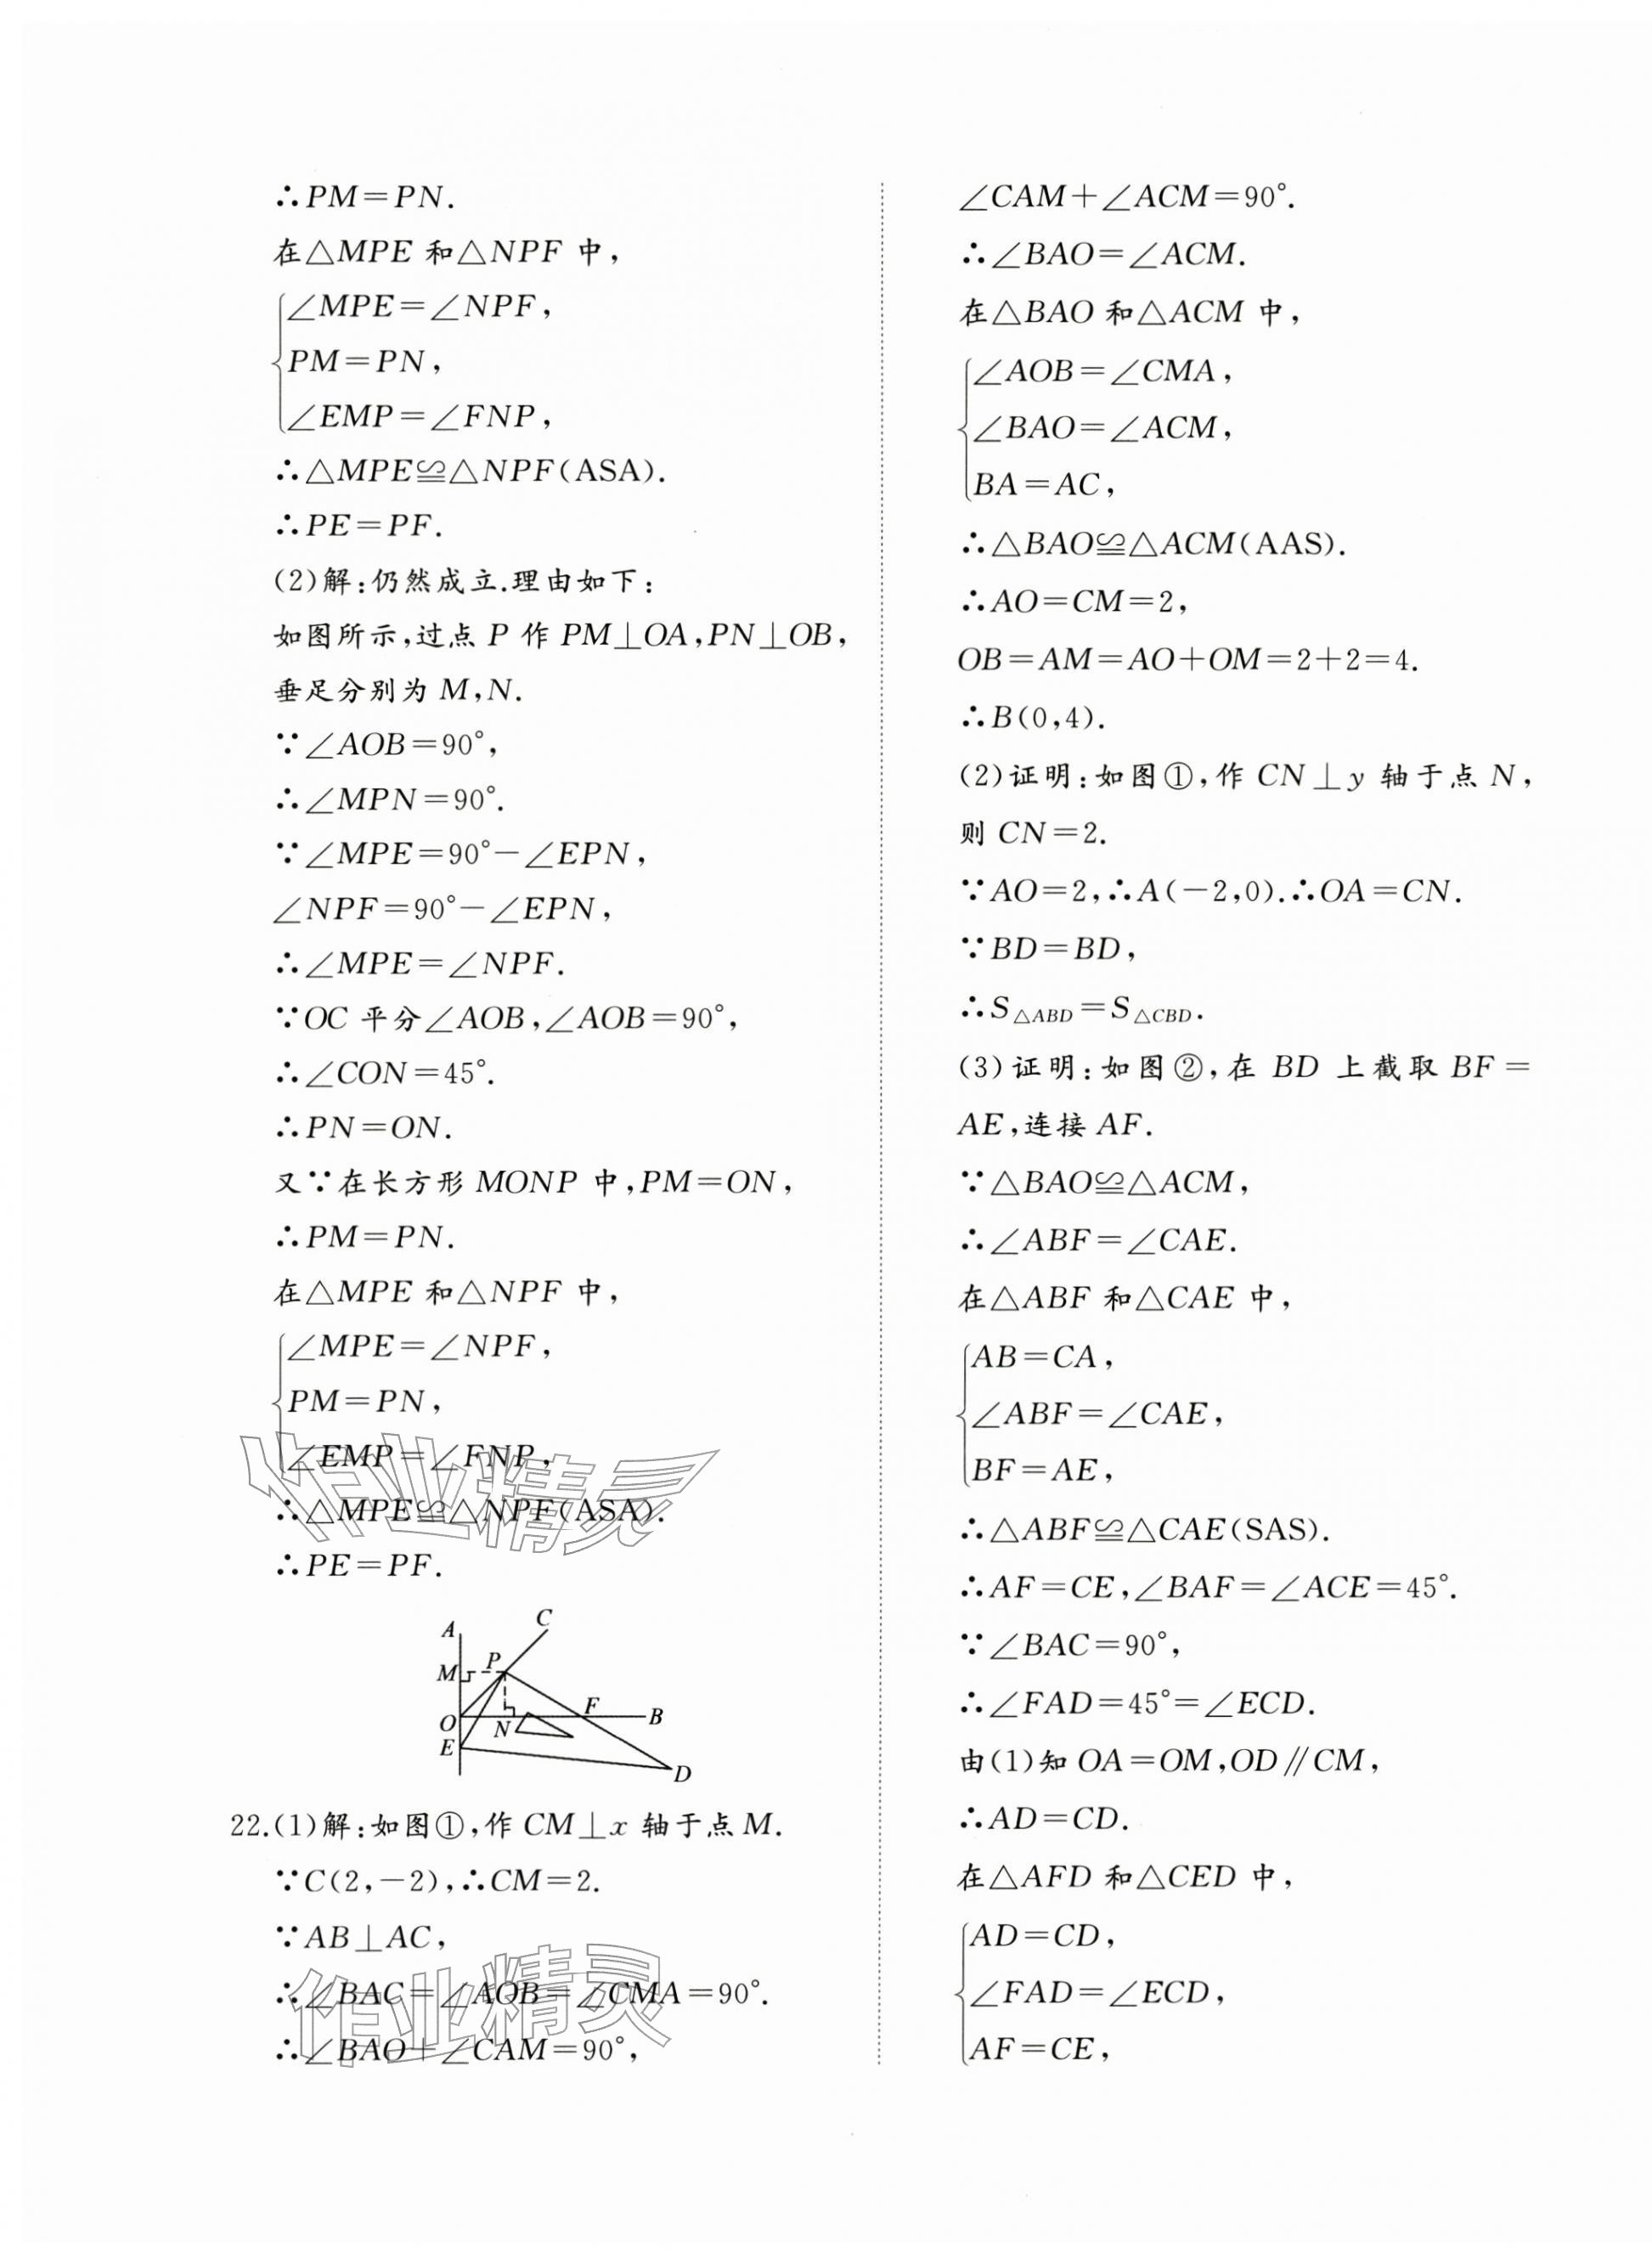 ∴PM=PN.
在△MPE 和△NPF 中,
∠MPE=∠NPF,
PM=PN,
∠EMP=∠FNP,
∴△MPE≌△NPF(ASA).
∴PE=PF.
(2)解:仍然成立.理由如下:
如图所示,过点 P 作 PM⊥OA,PN⊥OB,
垂足分别为 M,N.
∵∠AOB=90°,
∴∠MPN=90°.
∵∠MPE=90°-∠EPN,
∠NPF=90°-∠EPN,
∴∠MPE=∠NPF.
∵OC 平分∠AOB,∠AOB=90°,
∴∠CON=45°.
∴PN=ON.
又∵在长方形 MONP 中,PM=ON,
∴PM=PN.
在△MPE 和△NPF 中,
∠MPE=∠NPF,
PM=PN,
∠EMP=∠FNP,
∴△MPE≌△NPF(ASA).
∴PE=PF.
作业精灵
C
A
P
M
F
O
N
B
E
D
22.(1)解:如图①,作 CM⊥x 轴于点 M.
∵C(2,-2),∴CM=2.
∵AB⊥AC,
∴∠BAC=∠AOB=∠CMA=90°.
∴∠BAO+∠CAM=90°,
作业精灵
∠CAM+∠ACM=90°.
∴∠BAO=∠ACM.
在△BAO 和△ACM 中,
∠AOB=∠CMA,
∠BAO=∠ACM,
BA=AC,
∴△BAO≌△ACM(AAS).
∴AO=CM=2,
OB=AM=AO+OM=2+2=4.
∴B(0,4).
(2)证明:如图①,作 CN⊥y 轴于点 N,
则 CN=2.
∵AO=2,∴A(-2,0).∴OA=CN.
∵BD=BD,
∴S△ABD=S△CBD.
(3)证明:如图②,在 BD 上截取 BF=
AE,连接 AF.
∵△BAO≌△ACM,
∴∠ABF=∠CAE.
在△ABF 和△CAE 中,
AB=CA,
∠ABF=∠CAE,
BF=AE,
∴△ABF≌△CAE(SAS).
∴AF=CE,∠BAF=∠ACE=45°.
∵∠BAC=90°,
∴∠FAD=45°=∠ECD.
由(1)知 OA=OM,OD∥CM,
∴AD=CD.
在△AFD 和△CED 中,
AD=CD,
∠FAD=∠ECD,
AF=CE,